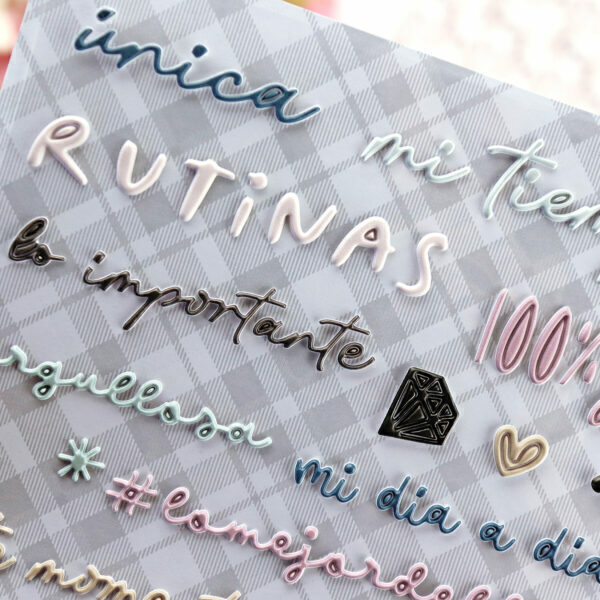 única
mi tiem
RUTiNAS
lo importante
100%
rgullosa
mi dia a dia
#lomejordel
mome